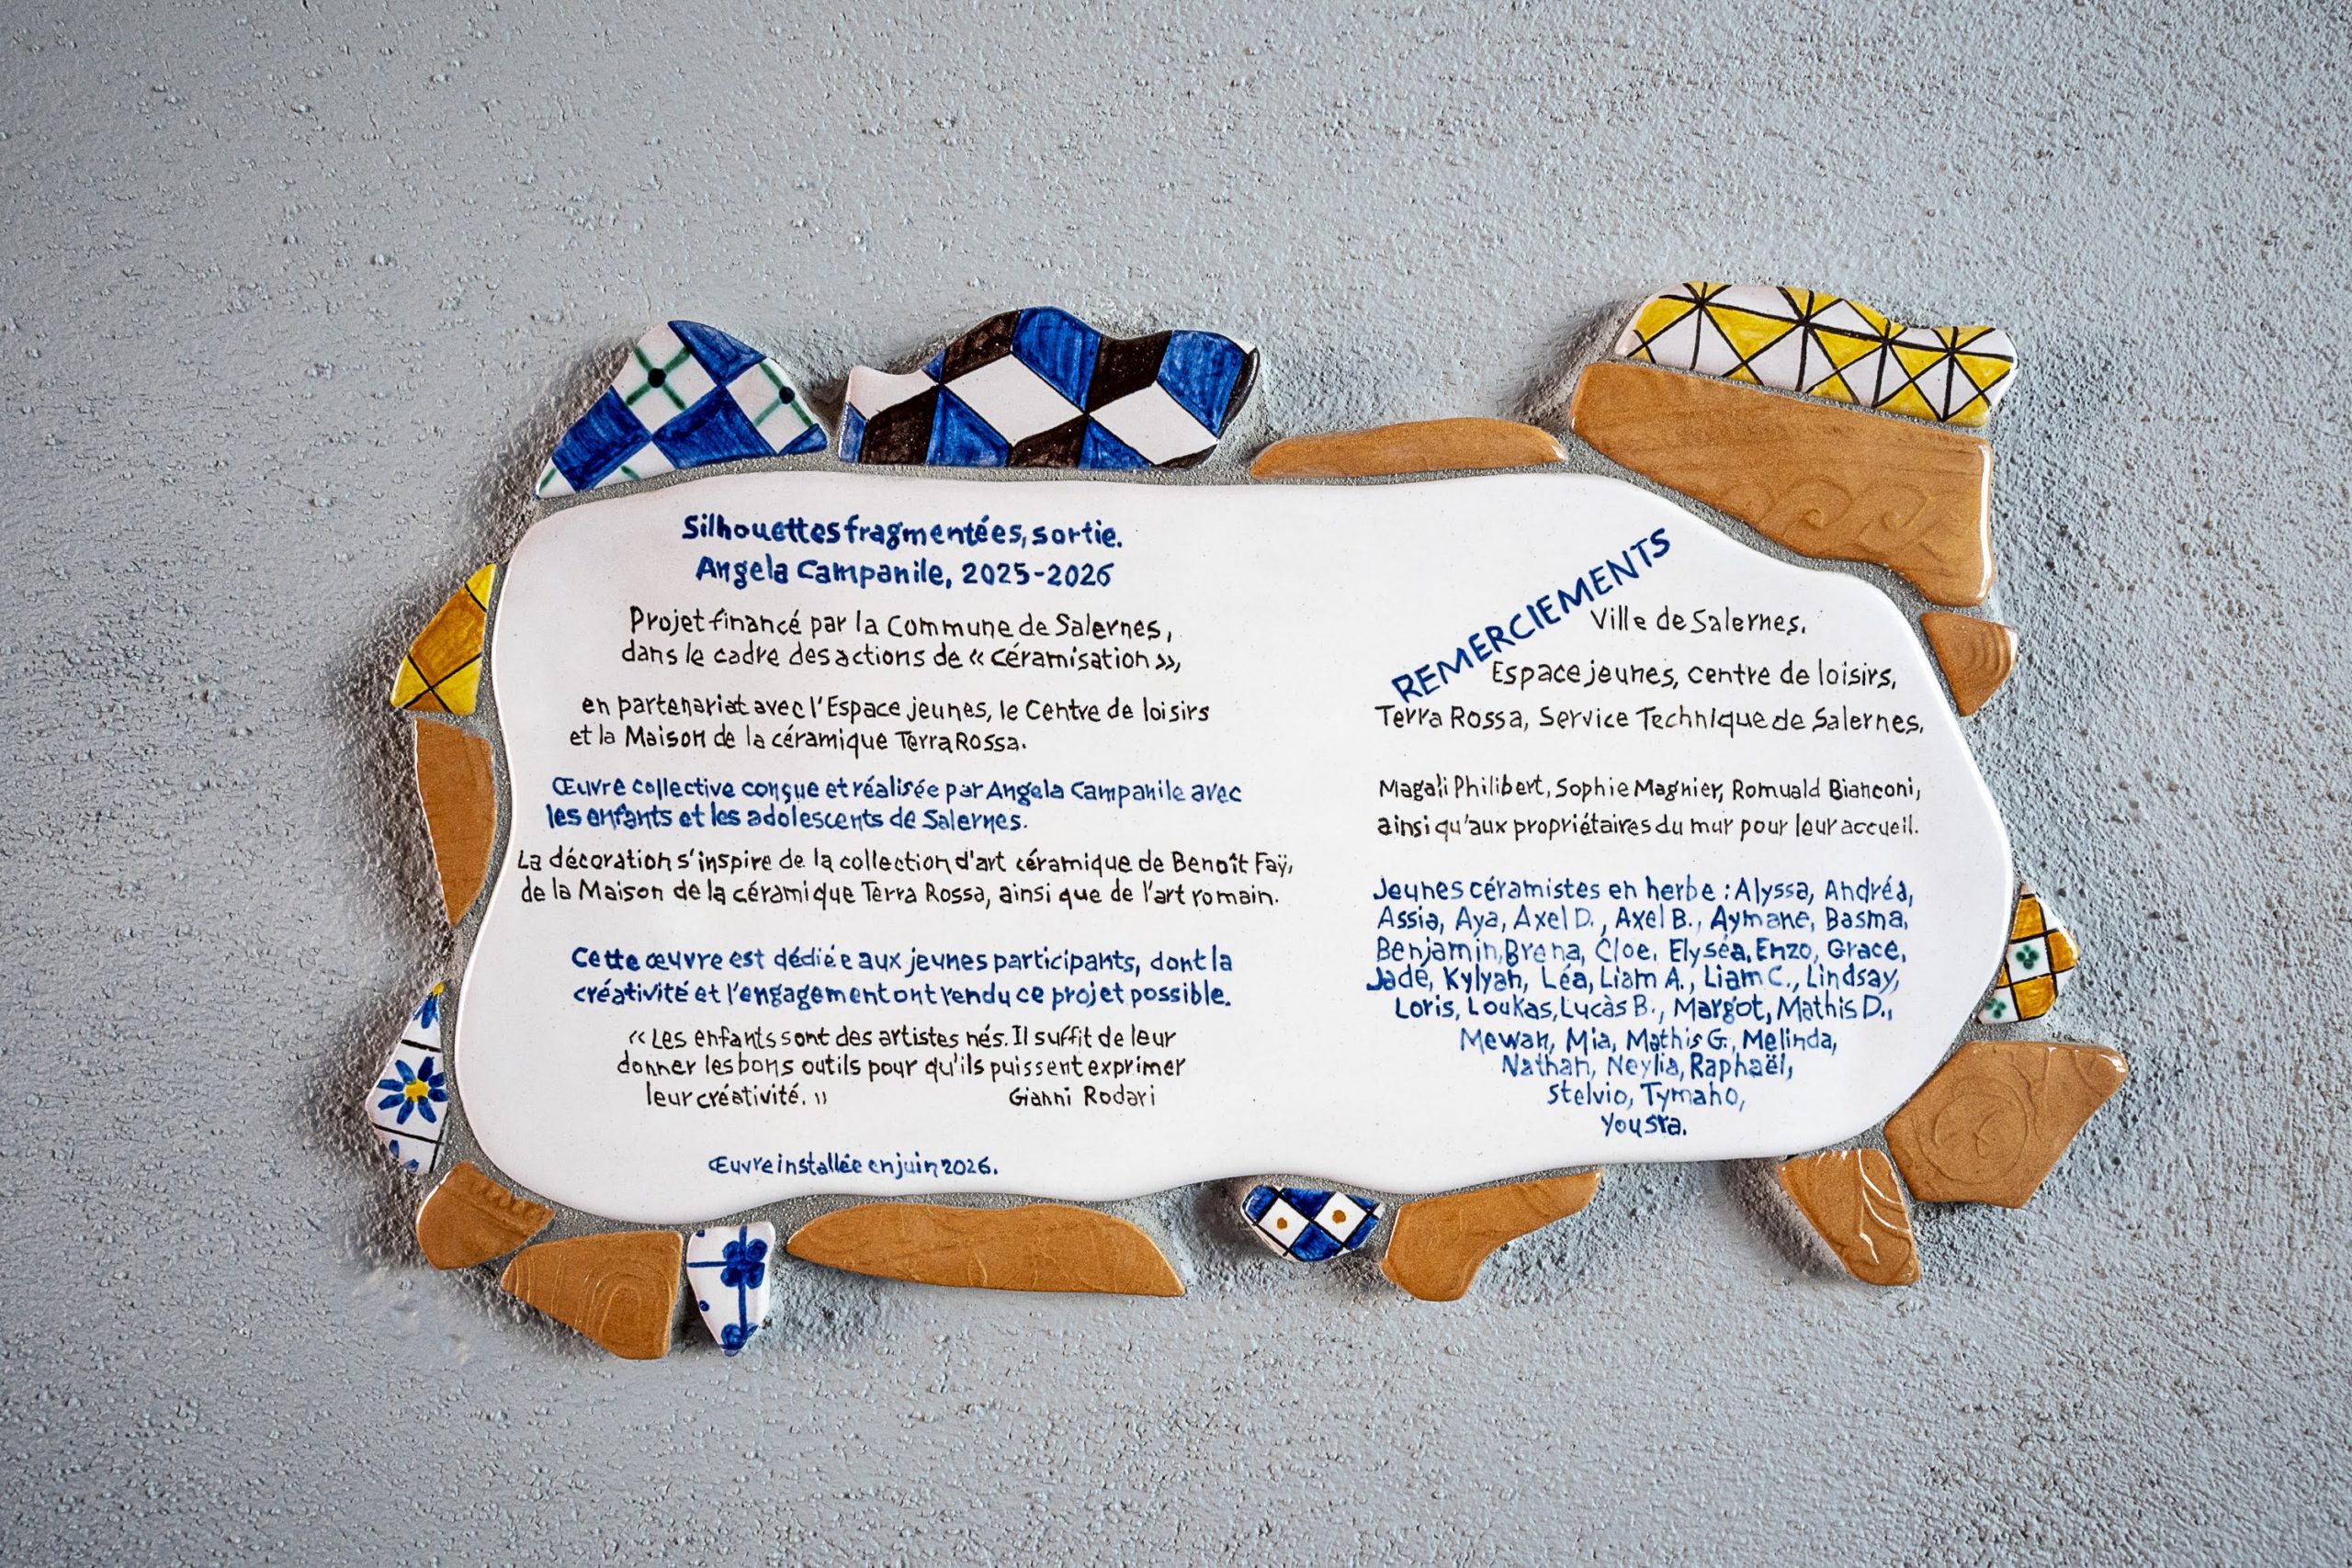 Silhouettes fragmentées, sortie.
Angela Campanile, 2025-2026
Projet financé par la Commune de Salernes,
dans le cadre des actions de « Céramisation »,
en partenariat avec l'Espace jeunes, le Centre de loisirs
et la Maison de la céramique Terra Rossa.
Œuvre collective conçue et réalisée par Angela Campanile avec
les enfants et les adolescents de Salernes.
La décoration s'inspire de la collection d'art céramique de Benoît Faÿ,
de la Maison de la céramique Terra Rossa, ainsi que de l'art romain.
Cette œuvre est dédiée aux jeunes participants, dont la
créativité et l'engagement ont rendu ce projet possible.
« Les enfants sont des artistes nés. Il suffit de leur
donner les bons outils pour qu'ils puissent exprimer
leur créativité. » Gianni Rodari
Œuvre installée en juin 2026.
REMERCIEMENTS
Ville de Salernes,
Espace jeunes, centre de loisirs,
Terra Rossa, Service Technique de Salernes,
Magali Philibert, Sophie Magnier, Romuald Bianconi,
ainsi qu'aux propriétaires du mur pour leur accueil.
Jeunes céramistes en herbe : Alyssa, Andréa,
Assia, Aya, Axel D., Axel B., Aymane, Basma,
Benjamin, Brena, Cloe, Elyséa, Enzo, Grace,
Jade, Kylyan, Léa, Liam A., Liam C., Lindsay,
Loris, Loukas, Lucàs B., Margot, Mathis D.,
Mewan, Mia, Mathis G., Melinda,
Nathan, Neylia, Raphaël,
Stelvio, Tymaho,
Yousra.